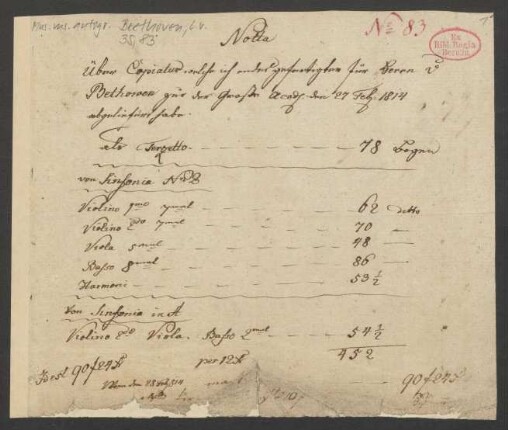 Mus. ms. autogr. Beethoven, L. v.
35, 83
No 83
Ex
Bibl. Regia
Berolin.
Notta
Über Copiatur welche ich endes gefertigter für Herrn v
Bethowen zur der Große Acad: den 27 Feb: 1814
abgeliefert habe
als Terzetto — 78 bogen
von Sinfonia No 8
Violino 1mo 7mal — 62 detto
Violino 2do 7mal — 70 —
Viola 5mal — 48 —
Basso 8mal — 86 —
Harmoni — 53 ½
Von Sinfonia in A
Violino 2do Viola. Basso 2mal — 54 ½
452
90 f 24 x per 12 x
90 f 24 x